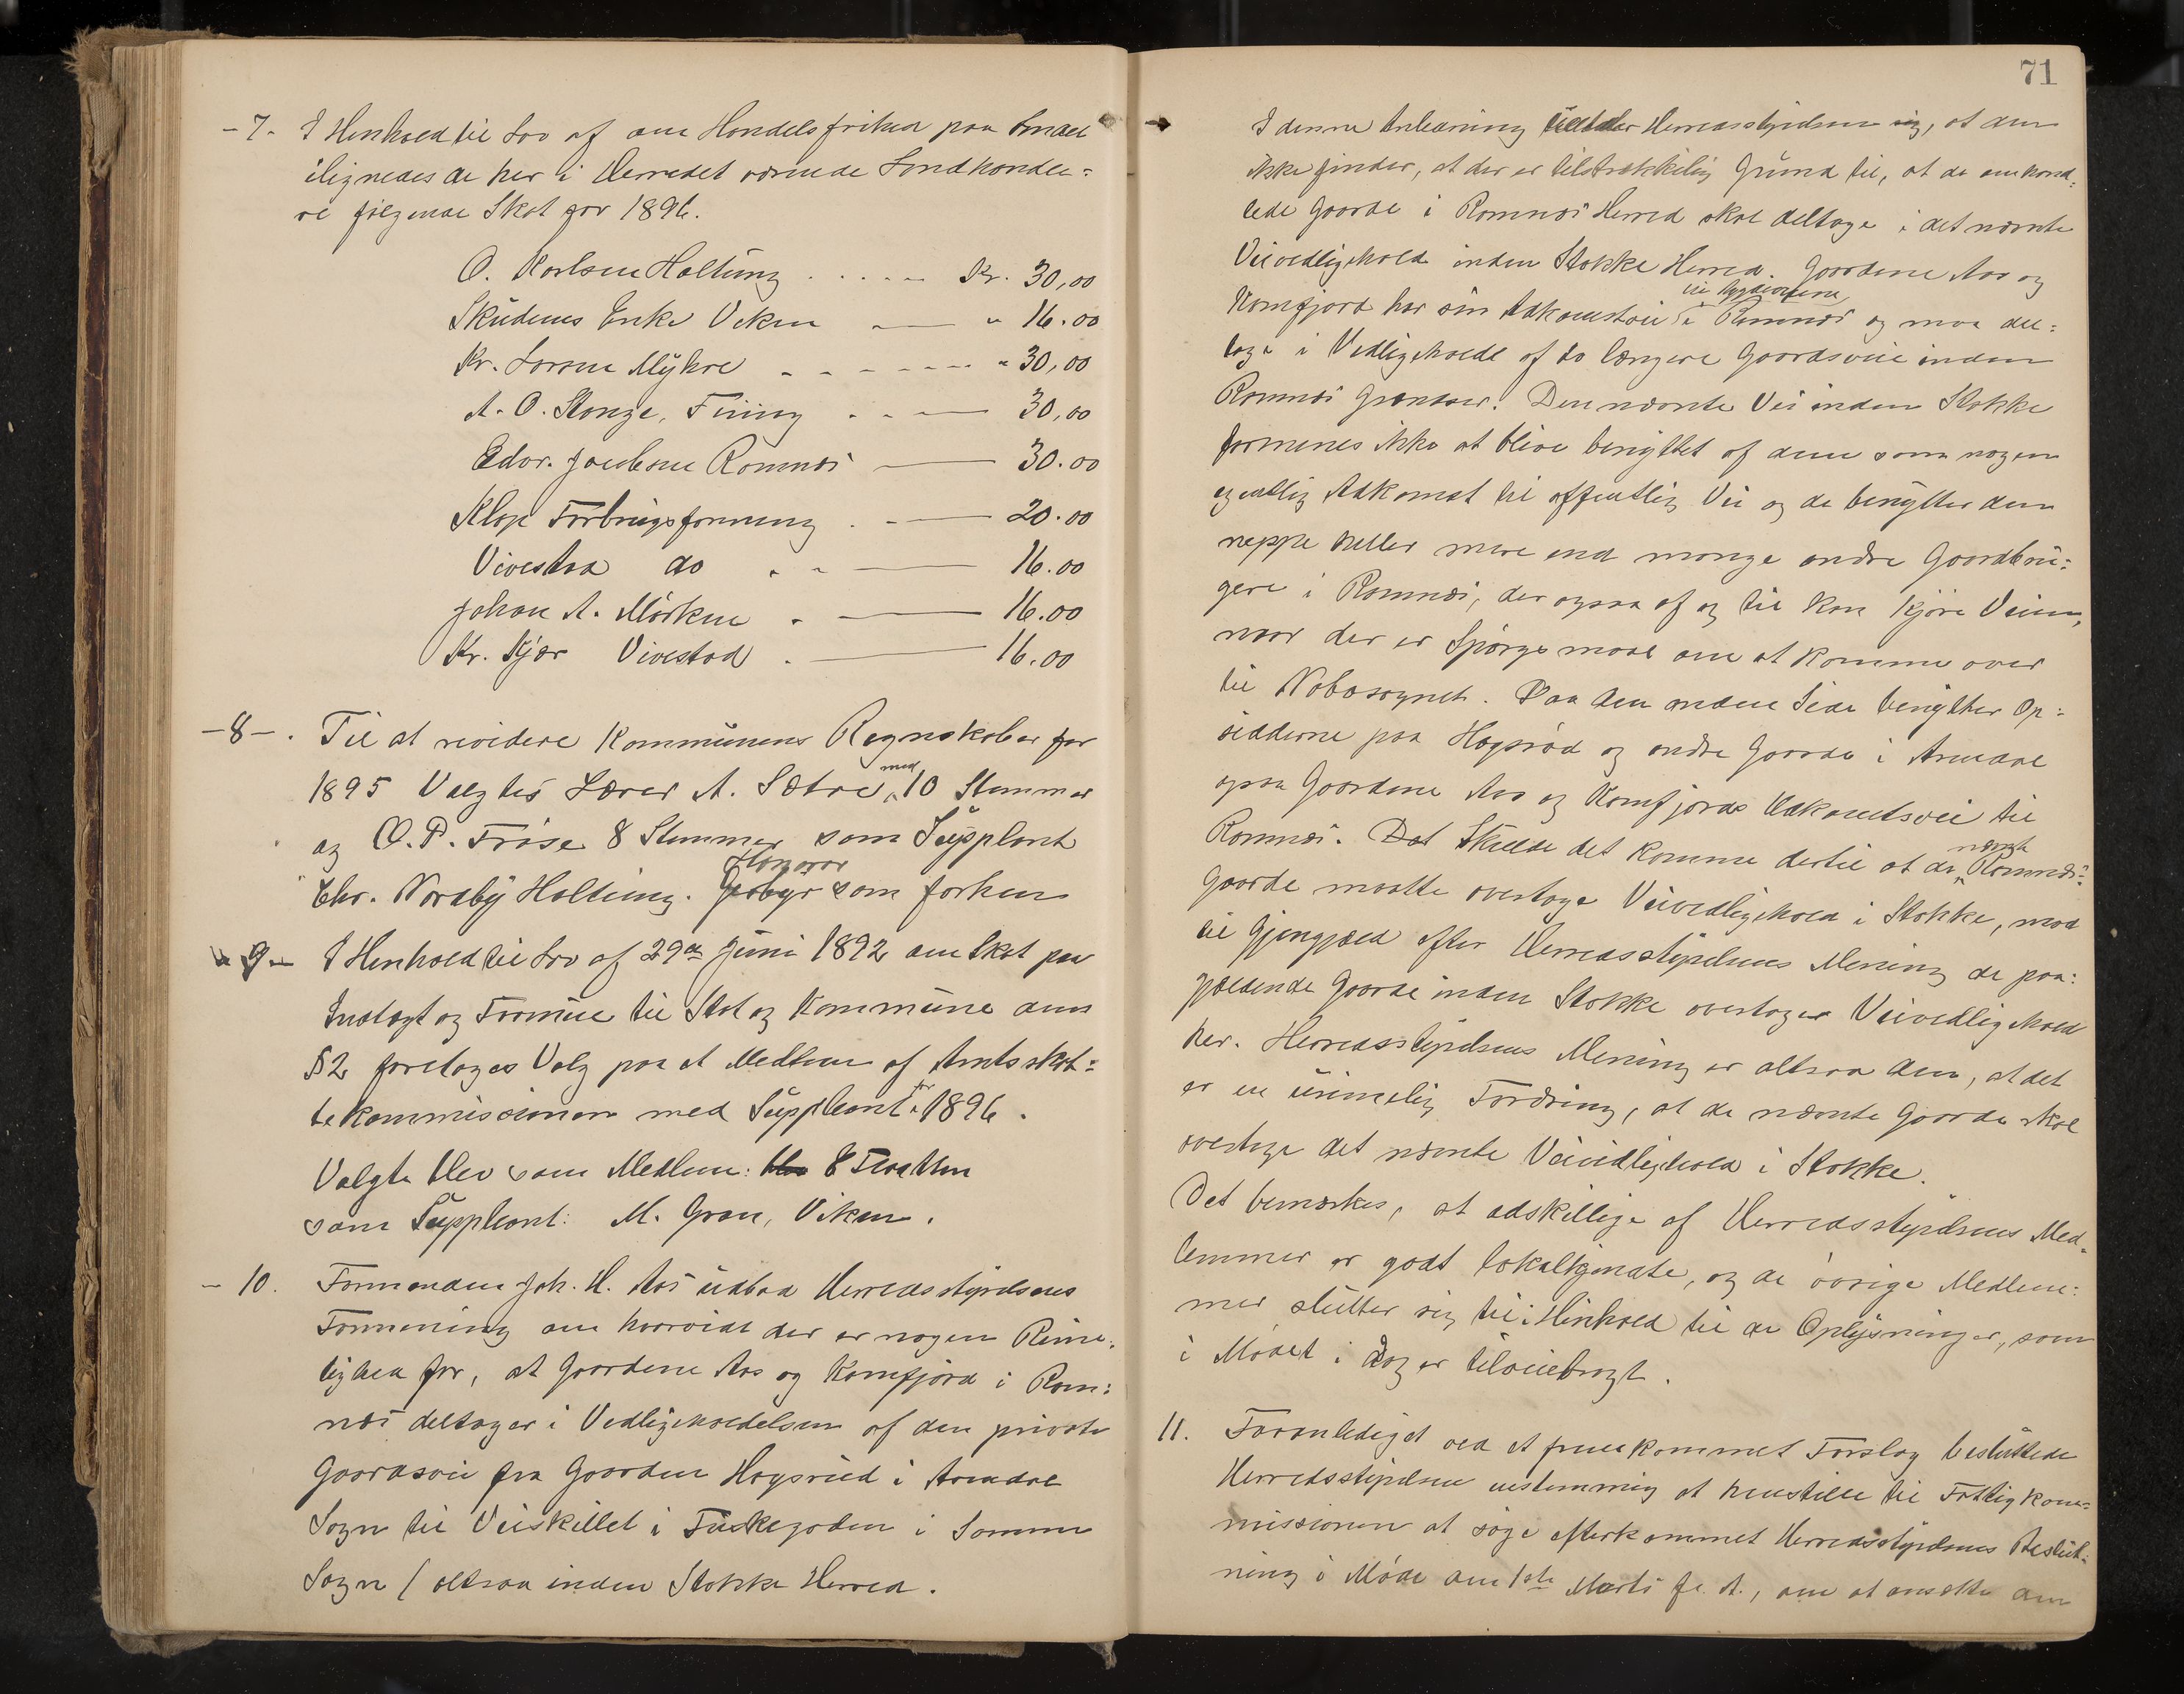 -7- I Henhold til Lov af om Handelsfrihed paa Smaal
ilignedes de her i Herredet værende Landhandle=
re følgende Skat for 1896.
O. Karlsen Holtung ..... Kr. 30,00
Skudems Enke Viken — " 16.00
Kr. Larsen Myhre ------ " 30,00
A. O. Stange, — 30,00
Edv. Jacobsen Ramnæs — 30.00
Klop Forbrugsforening — 20.00
Vivestad do — 16.00
Johan A. Mörken — 16.00
Kr. Kjær Vivestad — 16.00
-8-. Til at revidere Kommunens Regnskaber for
1895 Valgtes Lærer A. Sætre med 10 Stemmer
og O. P. Fröse 8 Stemmer som Suppleant
Chr. Nordby Holtung. Honorar som forhen
9- I Henhold til Lov af 29de Juni 1892 om Skat paa
Indtægt og Formue til Stat og Kommune dens
§2 foretages Valg paa et Medlem af Amtsskat=
tekommissionen med Suppleant for 1896.
Valgte blev som Medlem: E Flaatten
som Suppleant: M. Gran, Viken.
- 10. Formanden Joh. H. Aas udbad Herredsstyrelsens
Formening om hvorvidt der er nogen Rime=
lighed for, at Gaardene Aas og Kornfjord i Ram=
næs deltager i Vedligeholdelsen af den private
Gaardsvei fra Gaarden Høgsrud i Arendal
Sogn til Veiskillet i i Samme
Sogn / altsaa inden Stokke Herred.
71
I denne Anledning Herredsstyrelsen sig, at den
ikke finder, at der er tilstrækkelig Grund til, at de omhand=
lede Gaarde i Ramnæs Herred skal deltage i det nævnte
Veivedligehold inden Stokke Herred. Gaardene Aas og
til Bygdeveiene
Kornfjord har sin Adkomstvei i Ramnæs og maa del=
tage i Vedligehold af to længere Gaardsveie inden
Ramnæs Grændser. Den nævnte Vei inden Stokke
formenes ikke at blive benyttet af dem som nogen
egentlig Adkomst til offentlig Vei og de benytter den
neppe heller mere end mange andre Gaardbru=
gere i Ramnæs, der ogsaa af og til kan kjøre Veien,
naar der er Spørgsmaal om at komme over
til Nabosognet. Paa den anden Side benytter Op=
sidderne paa Høgsröd og andre Gaarde i Arendal
ogsaa Gaardene Aas og Kornfjords Adkomstvei til
Ramnæs. Skulde det komme dertil at de nævnte Ramnæs=
Gaarde maatte overtage Veivedligehold i Stokke, maa
til Gjengjæld efter Herredsstyrelsens Mening de paa=
gjældende Gaarde inden Stokke overtage Veivedligehold
her. Herredsstyrelsens Mening er altsaa den, at det
er en urimelig Fordring, at de nævnte Gaarde skal
overtage det nævnte Veivedligehold i Stokke.
Det bemærkes, at adskillige af Herredsstyrelsens Med=
lemmer er godt lokalkjendte, og de øvrige Medlem=
mer slutter sig til i Henhold til de Oplysninger, som
i Mødet i Dag er tilveiebragt.
11. Foranlediget ved et fremkommet Forslag besluttede
Herredsstyrelsen enstemmig at henstille til Fattigkom=
missionen at søge efterkommet Herredsstyrelsens Beslut=
ning i Møde den 1ste Marts f. A., om at ansætte en